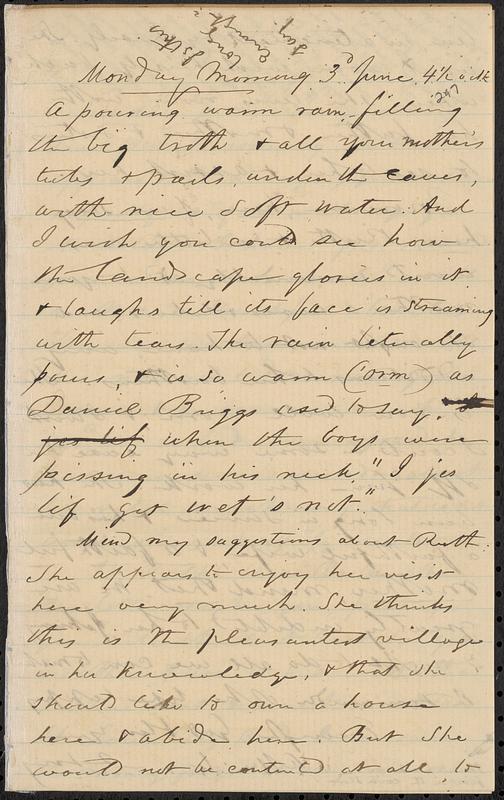 Monday Morning 3d June 4½ o.clk
247
A pouring warm rain, filling
the big troth & all your mother's
tubs & pails, under the eaves,
with nice soft water. And
I wish you could see how
the landscape glories in it
& laughs tell its face is streaming
with tears. The rain literally
pours, & is so warm (orm) as
Daniel Briggs used to say,
jes lif when the boys were
pissing in his neck "I jes
lif get wet 's not."
Mind my suggestions about Ruth.
She appears to enjoy her visit
here very much. She thinks
this is the pleasantest village
in her knowledge, & that she
should like to own a house
here & abide here. But she
would not be contented at all, to